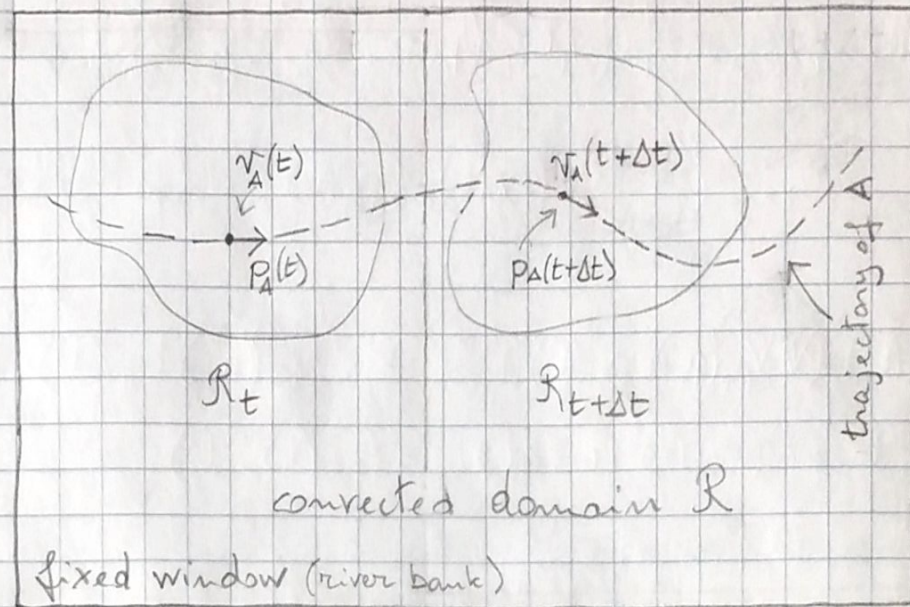 v_A(t)
p_A(t)
R_t
v_A(t+Δt)
p_A(t+Δt)
R_{t+Δt}
trajectory of A
convected domain R
fixed window (river bank)